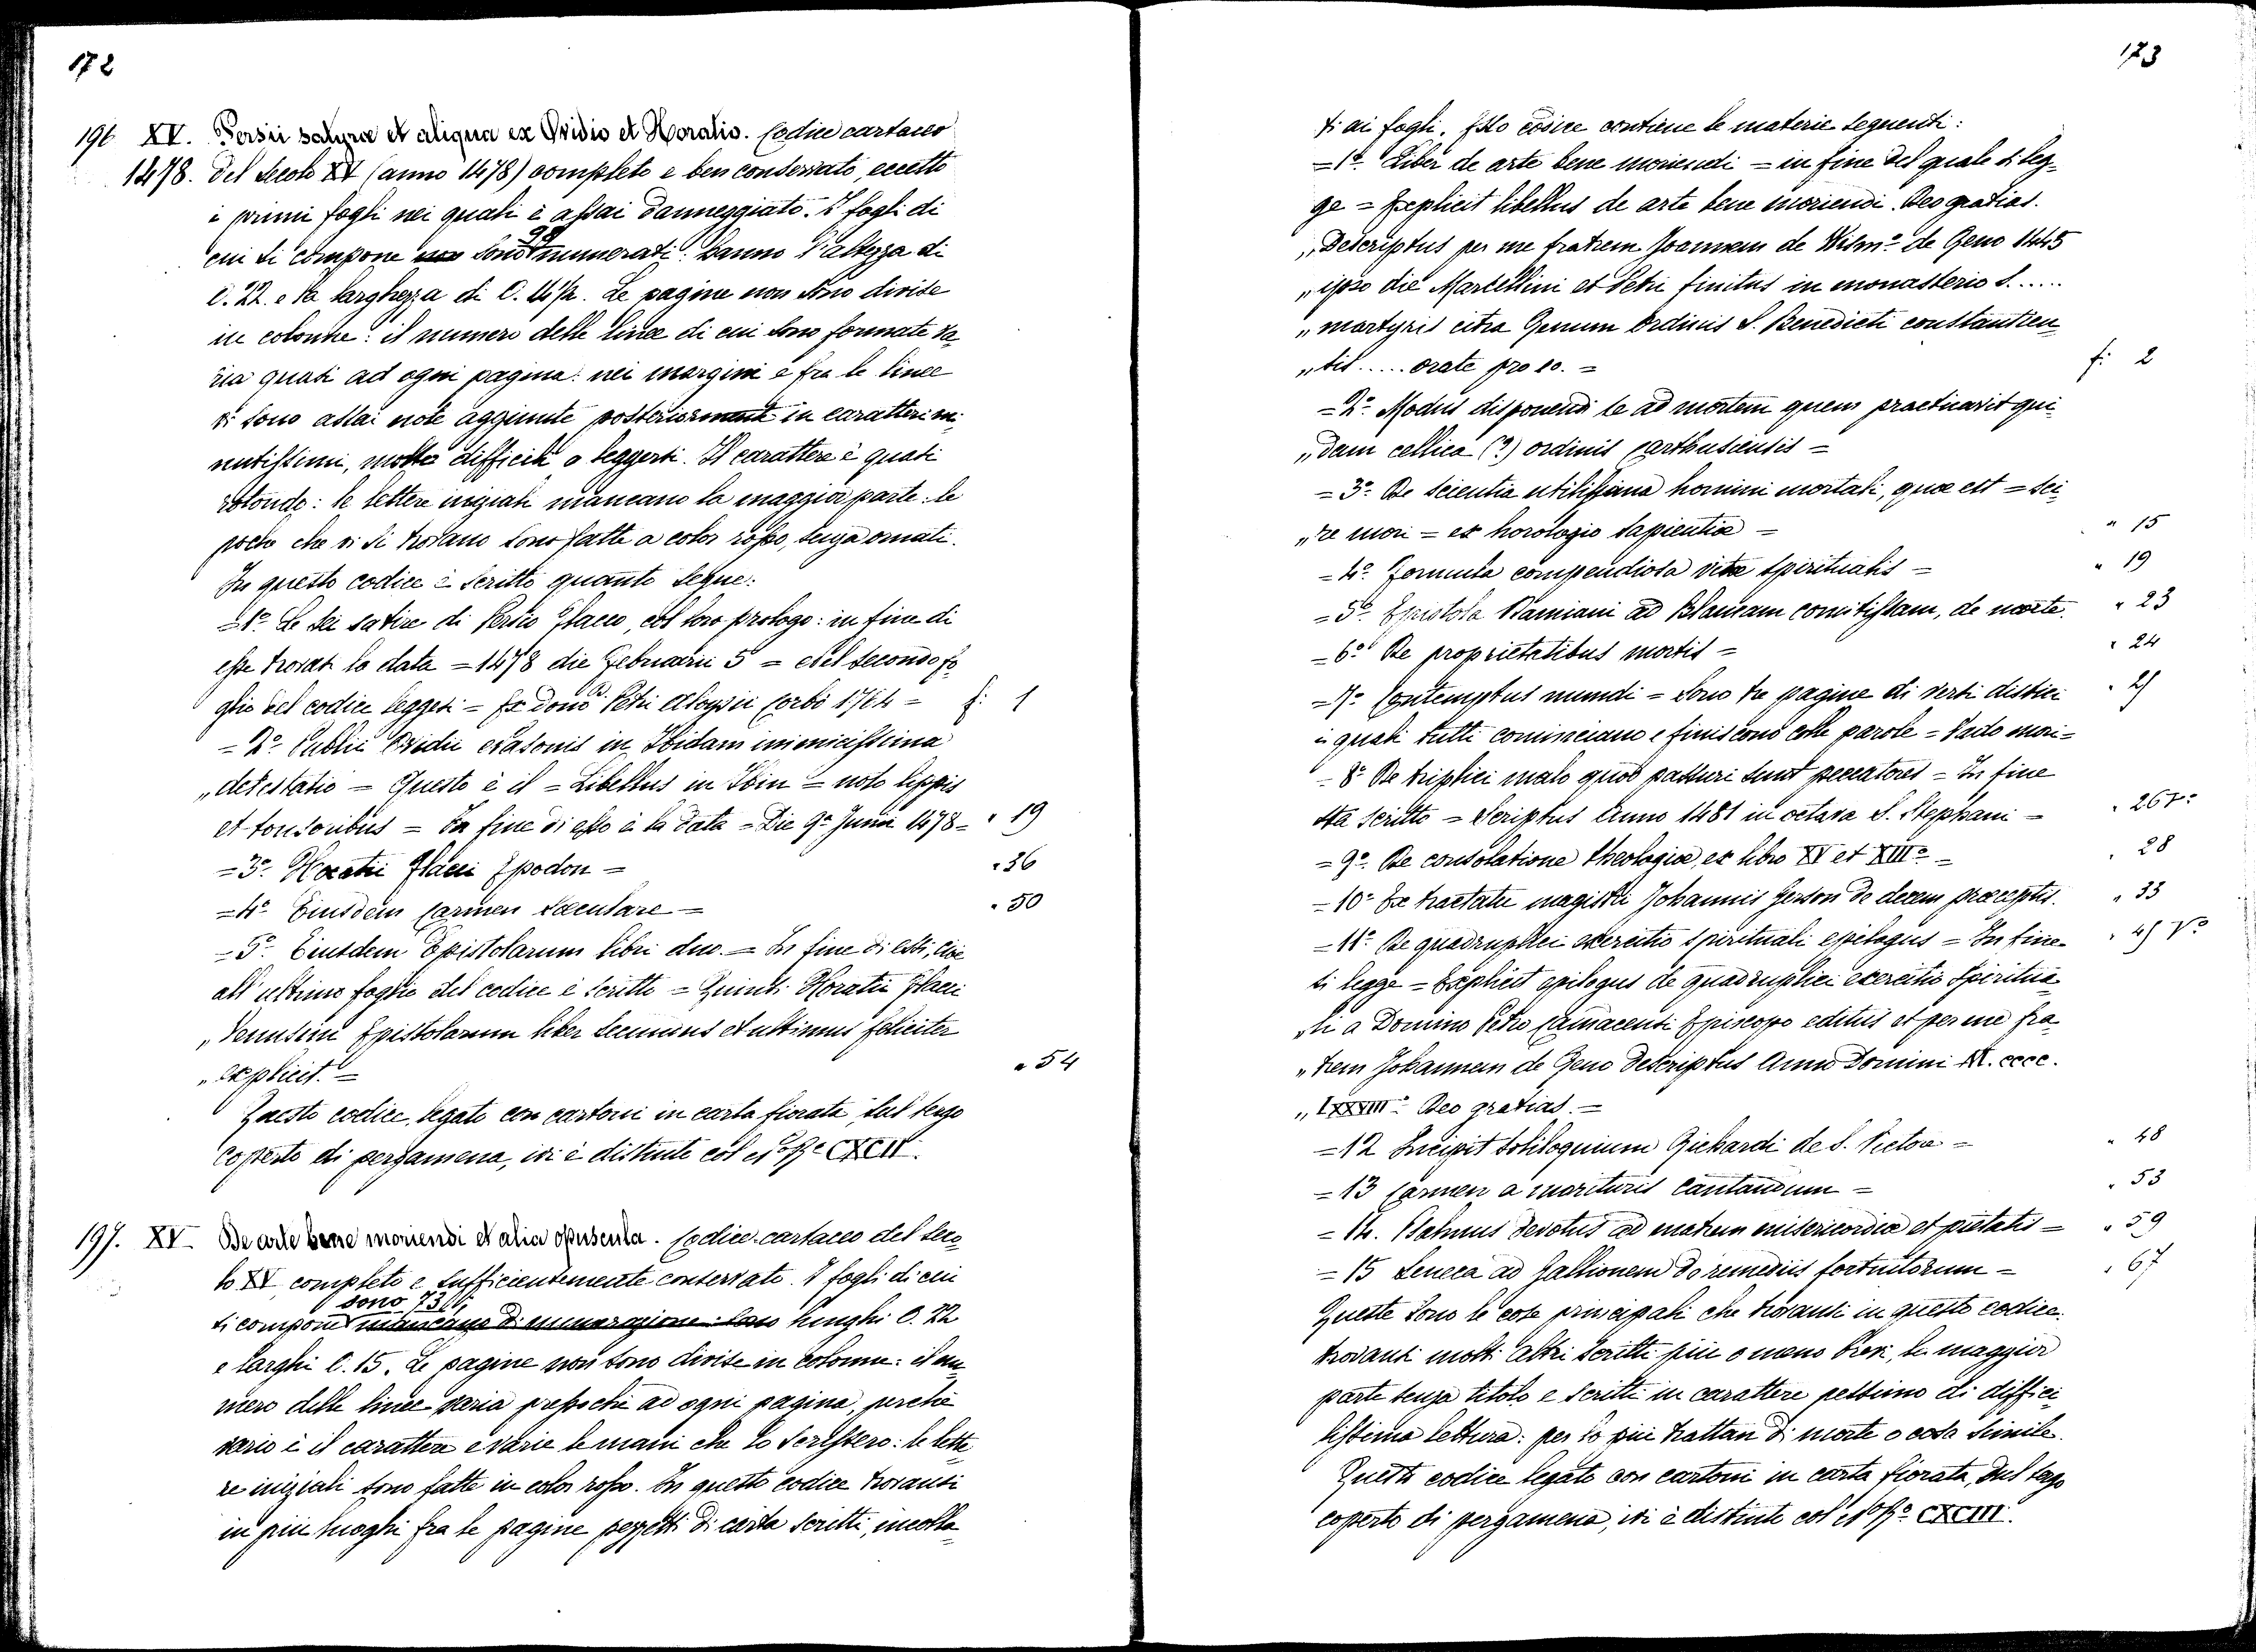 172
196 XV. Persii satyræ et aliqua ex Ovidio et Horatio. Codice cartaceo
1478. del secolo XV (anno 1478) completo e ben conservato, eccetto
i primi fogli nei quali è assai danneggiato. I fogli di
cui si compone sono numerati: hanno l'altezza di
C. 22. e la larghezza di C. Le pagine non sono divise
in colonne: il numero delle linee di cui sono formate va-
ria quasi ad ogni pagina: nei margini e fra le linee
vi sono assai note aggiunte posteriormente in caratteri mi-
nutissimi, molto difficili a leggersi. Il carattere è quasi
rotondo: le lettere iniziali mancano la maggior parte: le
poche che vi si trovano sono fatte a color rosso, senza ornati.
In questo codice è scritto quanto segue:
=1º Le sei satire di Persio Flacco, col loro prologo: in fine di
esse trovasi la data = 1478 die Februarii 5 = e nel secondo fo-
glio del codice leggesi = Ex dono D. Petri Aloysii Corbi 1764 = f: 1
=2º Publii Ovidii Nasonis in Ibidam inimicissima
„detestatio = Questo è il = Libellus in Ibin = noto lippis
et tonsoribus = In fine di esso è la data = Die 9ª Junii 1478 = " 19
=3º Horatii Flacci Epodon = " 36
=4º Eiusdem Carmen sæculare = " 50
=5º Eiusdem Epistolarum libri duo. = In fine di essi, cioè
all'ultimo foglio del codice è scritto = Quinti Horatii Flacci
„Venusini Epistolarum liber secundus et ultimus feliciter
„explicit. = " 54
Questo codice, legato con cartoni in carta fiorata, sul tergo
coperto di pergamena, ivi è distinto col Nº Rº CXCII.
197. XV. De arte bene moriendi et alia opuscula. Codice cartaceo del seco-
lo XV, completo e sufficientemente conservato. I fogli di cui
sono 73
si compone mancano di numerazione: sono lunghi C. 22
e larghi C. 15. Le pagine non sono divise in colonne: il nu-
mero delle linee varia pressochè ad ogni pagina, perchè
vario è il carattere e varie le mani che lo scrissero: le lette-
re iniziali sono fatte in color rosso. In questo codice trovansi
in più luoghi fra le pagine pezzetti di carta scritti, incolla-
173
ti ai fogli. Esso codice contiene le materie seguenti:
=1º Liber de arte bene moriendi = in fine del quale si leg-
ge = Explicit libellus de arte bene moriendi. Deo gratias.
„Descriptus per me fratrem Joannem de de Geno 1445
„ipso die Marcellini et Petri finitus in monasterio S.....
„martyris citra Genum ordinis S. Benedicti constantien-
„sis..... orate pro eo. = f: 2
=2º Modus disponendi se ad mortem quem practicavit qui-
„dam cellica (?) ordinis carthusiensis =
=3º De scientia utilissima homini mortali, quæ est = sci-
„re mori = ex horologio sapientiæ = " 15
=4º Formula compendiosa vitæ spiritualis = " 19
=5º Epistola Damiani ad Blancam comitissam, de morte. " 23
=6º De proprietatibus mortis = " 24
=7º Contemptus mundi = Sono tre pagine di versi distici " 25
i quali tutti cominciano e finiscono colle parole = Vado mori =
=8º De triplici malo quod passuri sunt peccatores = In fine
sta scritto = Scriptus Anno 1481 in octava S. Stephani = " 26
=9º De consolatione theologiæ, ex libro XV et XIIIº = " 28
=10º Ex tractatu magistri Johannis Gerson de decem præceptis. " 33
=11º De quadruplici exercitio spirituali epilogus = In fine " 45 Vº
si legge = Explicit epilogus de quadruplici exercitio spiritua-
„li a Domino Petro Camacensi Episcopo editus et per me fra-
„trem Johannem de Geno descriptus Anno Domini M. cccc.
„LXXVIIIº Deo gratias. =
=12 Incipit soliloquium Richardi de S. Victore = " 48
=13 Carmen a morituris cantandum = " 53
=14. Psalmus devotus ad matrem misericordiæ et pietatis = " 59
=15 Seneca ad Gallionem de remediis fortuitorum = " 67
Queste sono le cose principali che trovansi in questo codice.
trovansi molti altri scritti più o meno brevi, la maggior
parte senza titolo e scritti in carattere pessimo di diffici-
lissima lettura: per lo più trattan di morte o cosa simile.
Questo codice legato con cartoni in carta fiorata, sul tergo
coperto di pergamena, ivi è distinto col Nº Rº CXCIII.